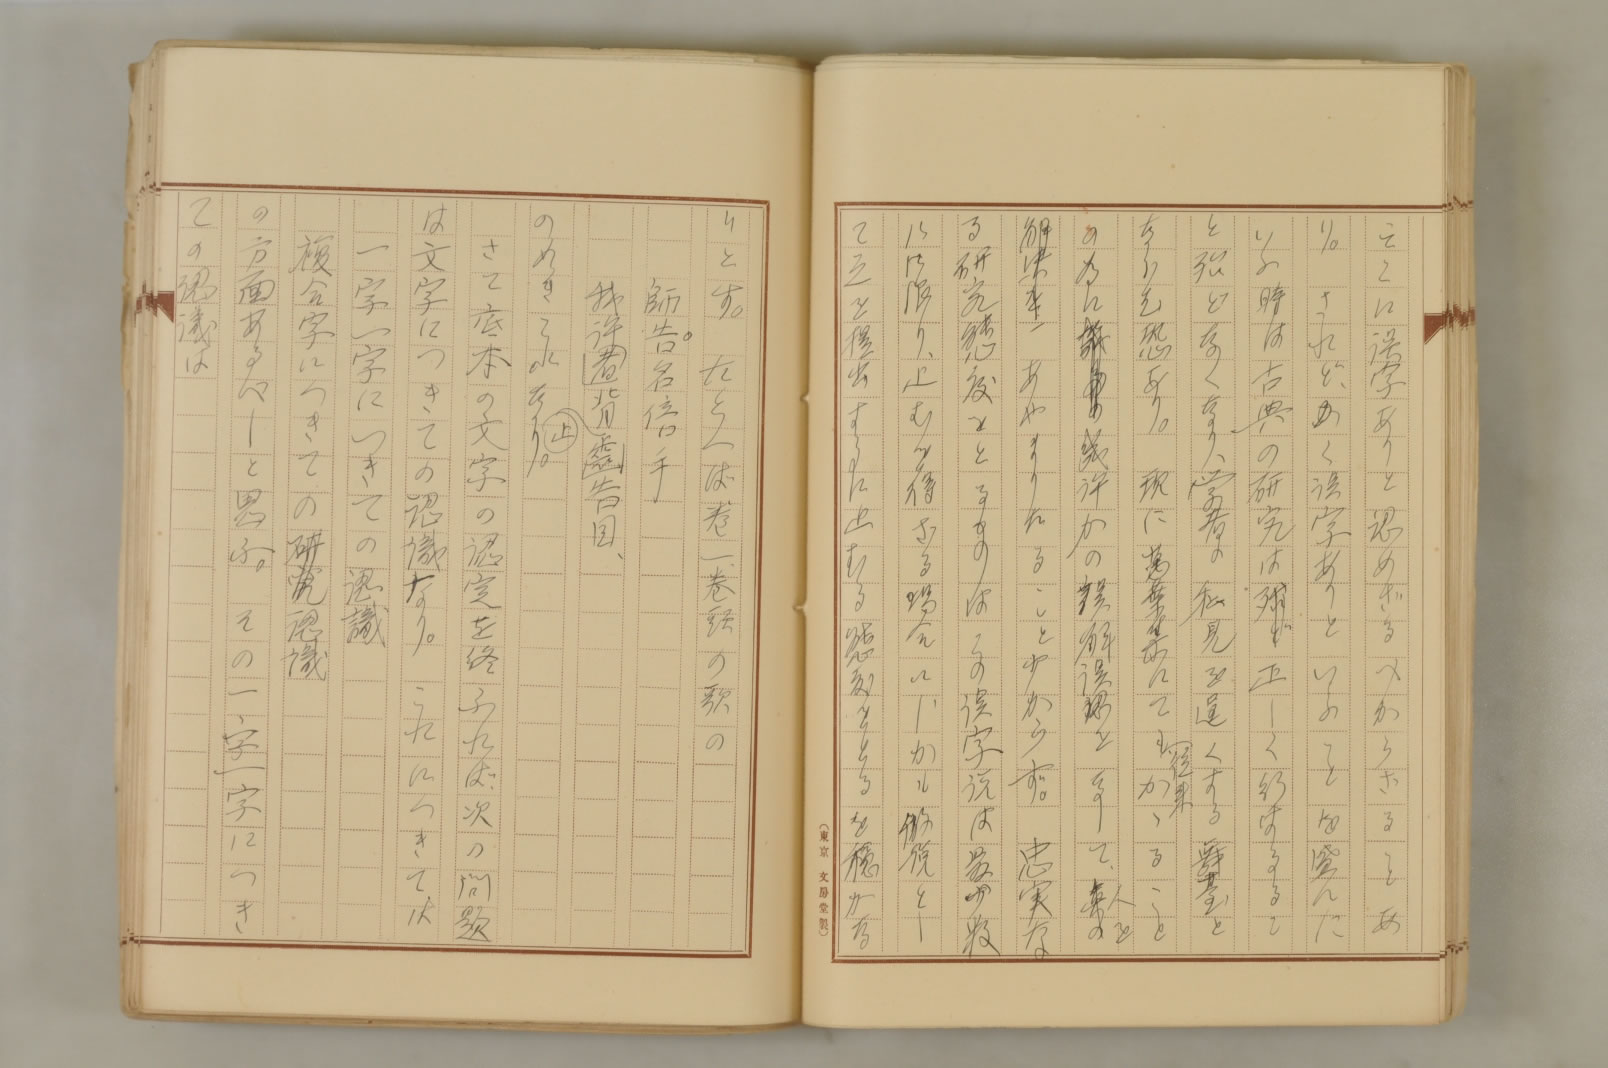 こゝに誤字ありと認めざるべからざることあ
り。されど、かく誤字ありといふことを盛んに
いふ時は古典の研究は殆ど正しく行はるるこ
と殆どなくなり、学者の私見を逞くする舞台と
なる恐あり。現に萬葉集にても従来かゝること
の為に幾許かの誤解誤謬をなして、人を
あやまりたること少からず。忠実な
る研究態度をとるものはこの誤字説は最少限
に限り、止むを得ざる場合にしかも仮説とし
て之を提出するに止むる態度をとるを穏かな
りとす。たとへば巻一巻頭の歌の
師告名倍手
我許背齒告目、
のぬきこれなり。
止
さて底本の文字の認定を終ふれば、次の問題
は文字につきての認識なり。これにつきては
一字一字につきての認識
複合字につきての研究認識
の方面あるべしと思ふ。その一字一字につき
ての認識は
(東京 文房堂製)